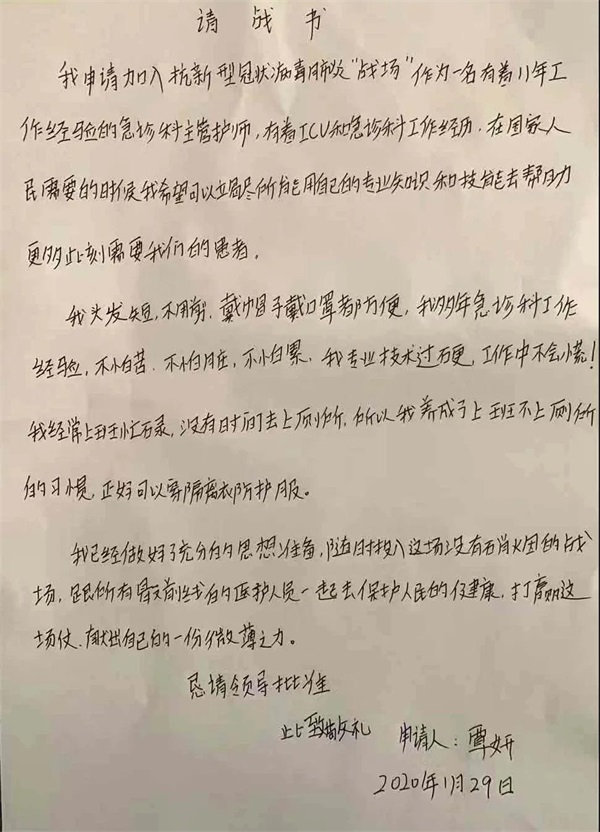 请战书
我申请加入抗新型冠状病毒肺炎“战场”作为一名有着11年工
作经验的急诊科主管护师，有着ICU和急诊科工作经历，在国家人
民需要的时候我希望可以竭尽所能用自己的专业知识和技能去帮助
更多此刻需要我们的患者。
我头发短，不用剪，戴帽子戴口罩都方便，我多年急诊科工作
经验，不怕苦、不怕脏，不怕累，我专业技术过硬，工作中不会慌！
我经常上班忙碌，没有时间去上厕所，所以我养成了上班不上厕所
的习惯，正好可以穿隔离衣防护服。
我已经做好了充分的思想准备，随时投入这场没有硝火国的战
场，跟所有最前线的医护人员一起去保护人民的健康，打赢这
场仗，献出自己的一份微薄之力。
恳请领导批准
此致敬礼 申请人：覃妍
2020年1月29日